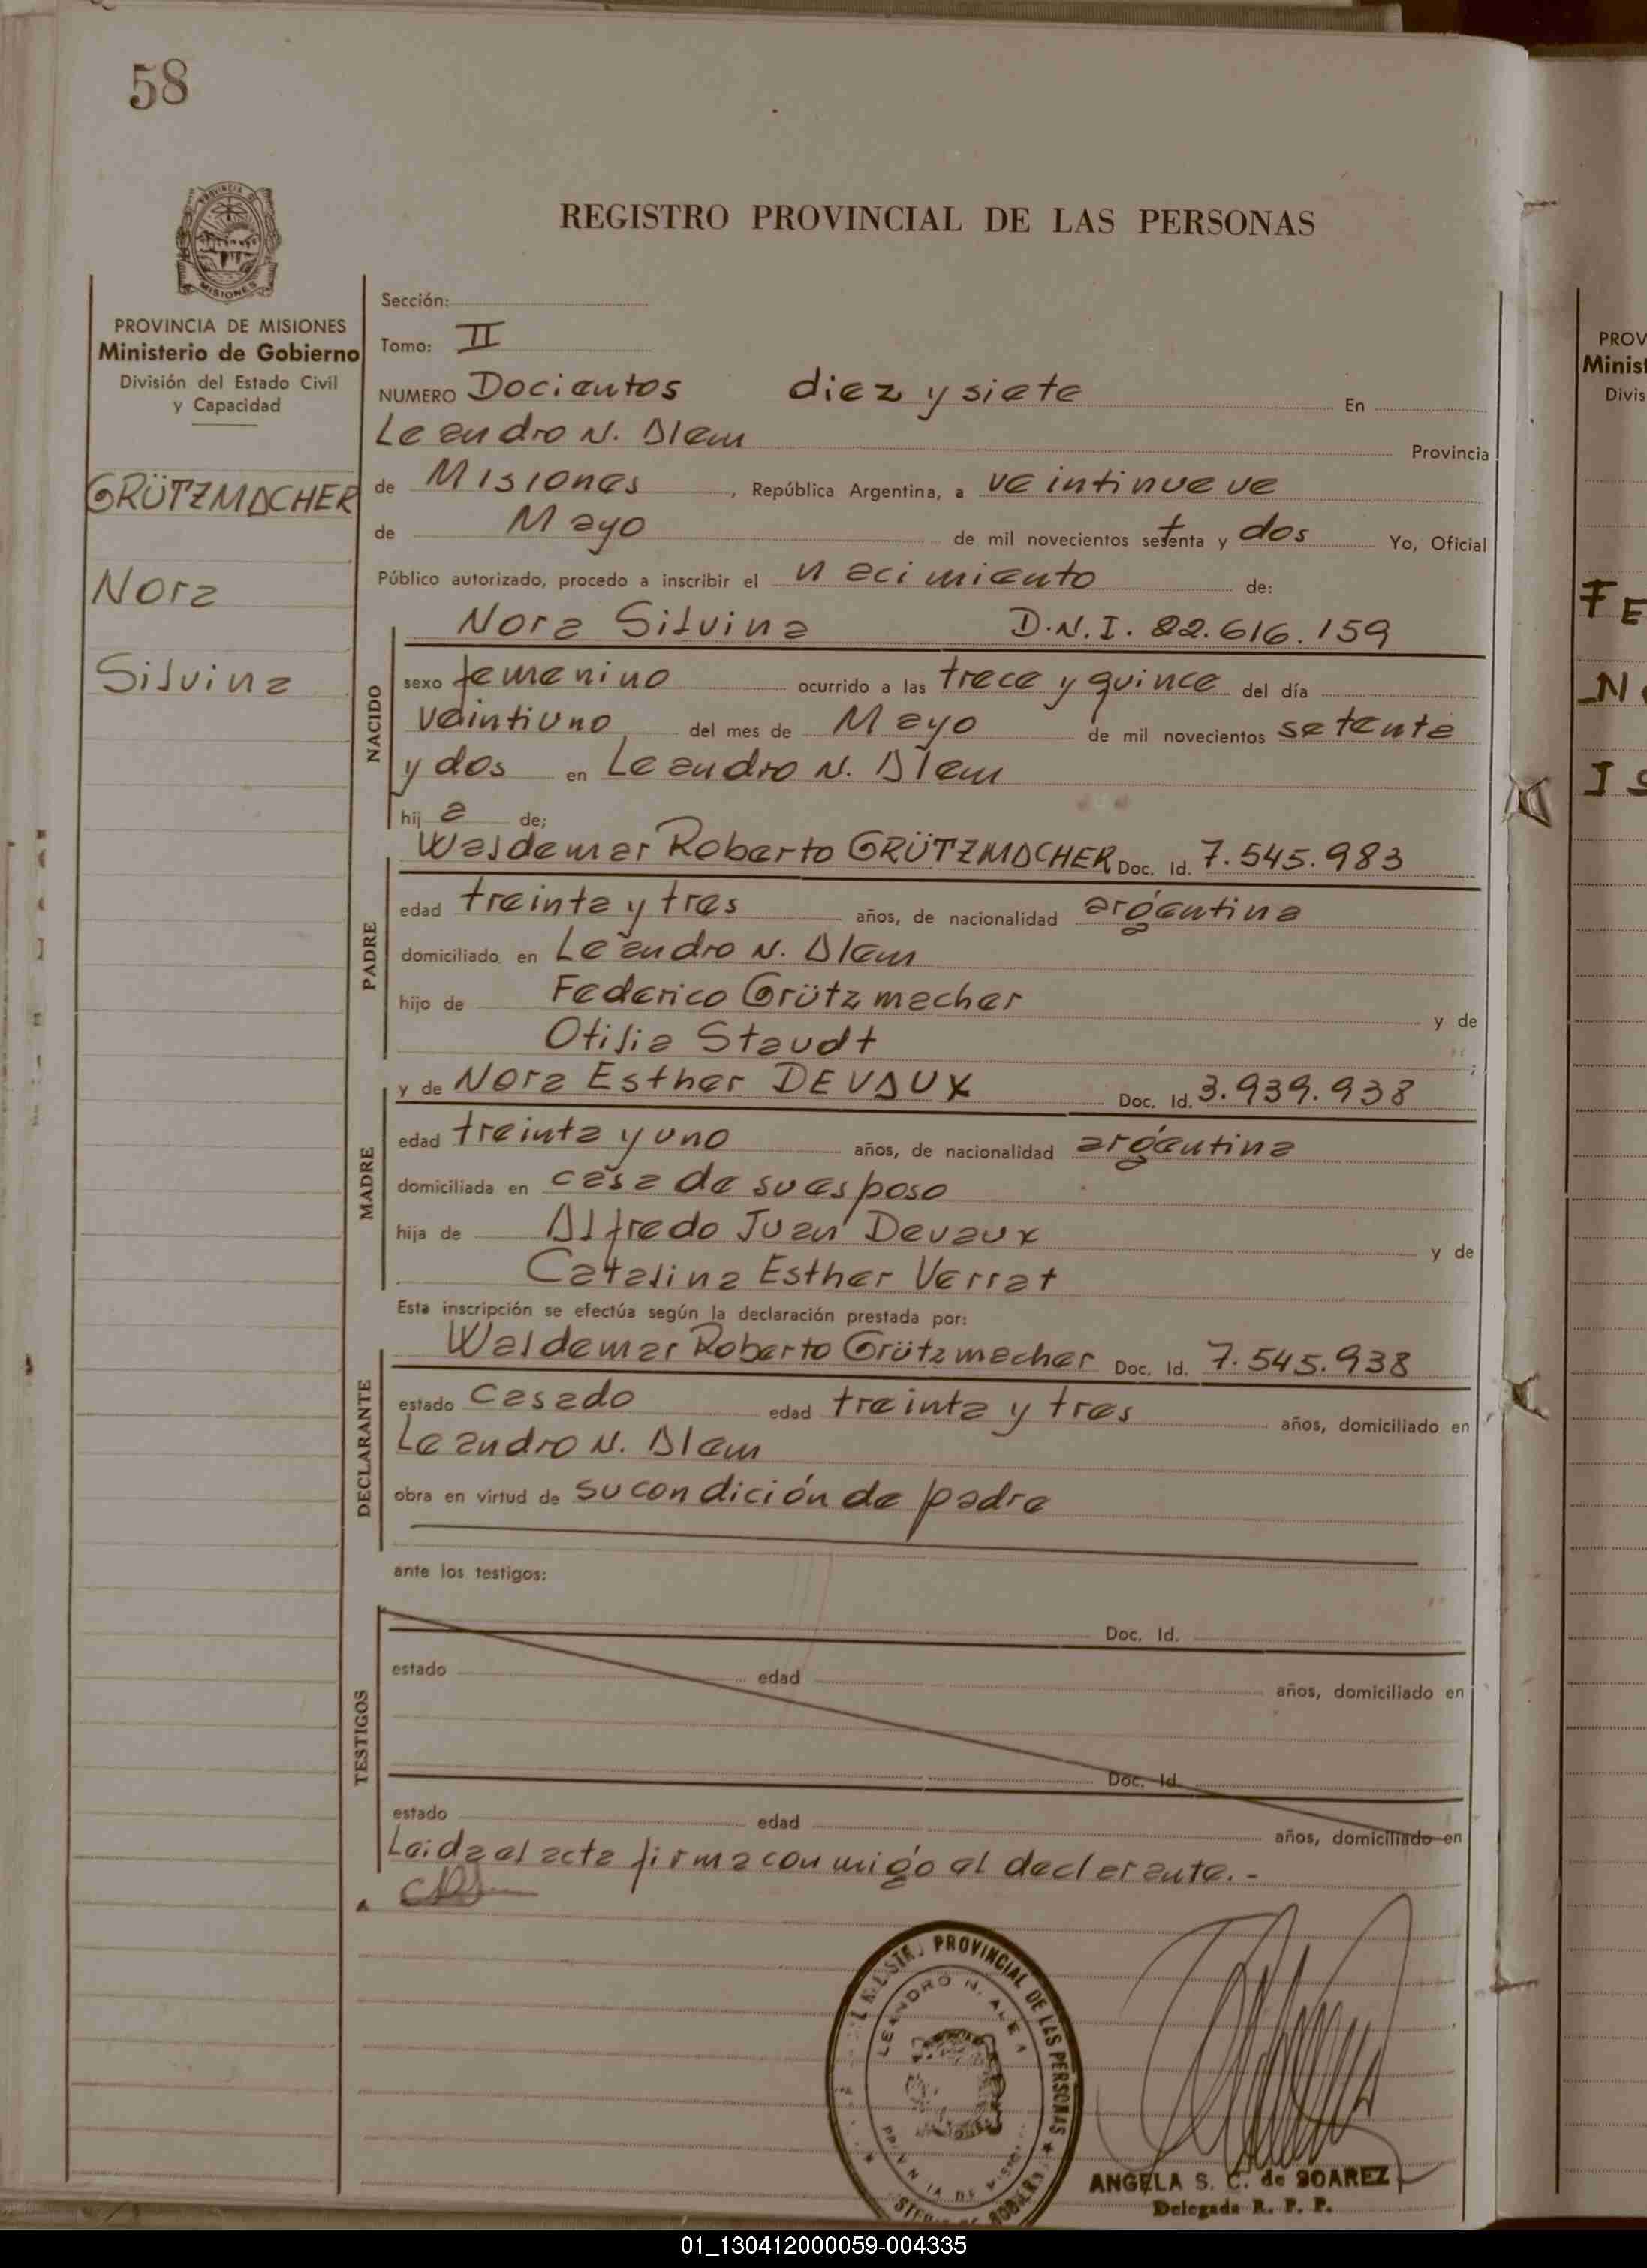 58
REGISTRO PROVINCIAL DE LAS PERSONAS
PROVINCIA DE MISIONES
Ministerio de Gobierno
División del Estado Civil
y Capacidad
GRÜTZMACHER
Nora
Silvina
Sección:
Tomo: II
NUMERO Docientos diez y siete En
Leandro N. Alem Provincia
de Misiones, República Argentina, a veintinueve
de Mayo de mil novecientos setenta y dos Yo, Oficial
Público autorizado, procedo a inscribir el nacimiento de:
NACIDO
Nora Silvina D.N.I. 22.616.159
sexo femenino ocurrido a las trece y quince del día
veintiuno del mes de Mayo de mil novecientos setenta
y dos en Leandro N. Alem
hij a de;
PADRE
Waldemar Roberto GRÜTZMACHER Doc. Id. 7.545.983
edad treinta y tres años, de nacionalidad argentina
domiciliado en Leandro N. Alem
hijo de Federico Grützmacher y de
Otilia Staudt ;
MADRE
y de Nora Esther DEVAUX Doc. Id. 3.939.938
edad treinta y uno años, de nacionalidad argentina
domiciliada en casa de su esposo
hija de Alfredo Juan Devaux y de
Catalina Esther Verrat
Esta inscripción se efectúa según la declaración prestada por:
DECLARANTE
Waldemar Roberto Grützmacher Doc. Id. 7.545.938
estado casado edad treinta y tres años, domiciliado en
Leandro N. Alem
obra en virtud de su condición de padre
ante los testigos:
TESTIGOS
Doc. Id.
estado edad años, domiciliado en
Doc. Id.
estado edad años, domiciliado en
Leida el acta firma conmigo el declarante.-
PROVINCIAL DE LAS PERSONAS
LEANDRO N. ALEM
ANGELA S. C. de SOAREZ
Delegada R. P. P.
PROV
Minist
Divis
FE
N
IS
01_130412000059-004335